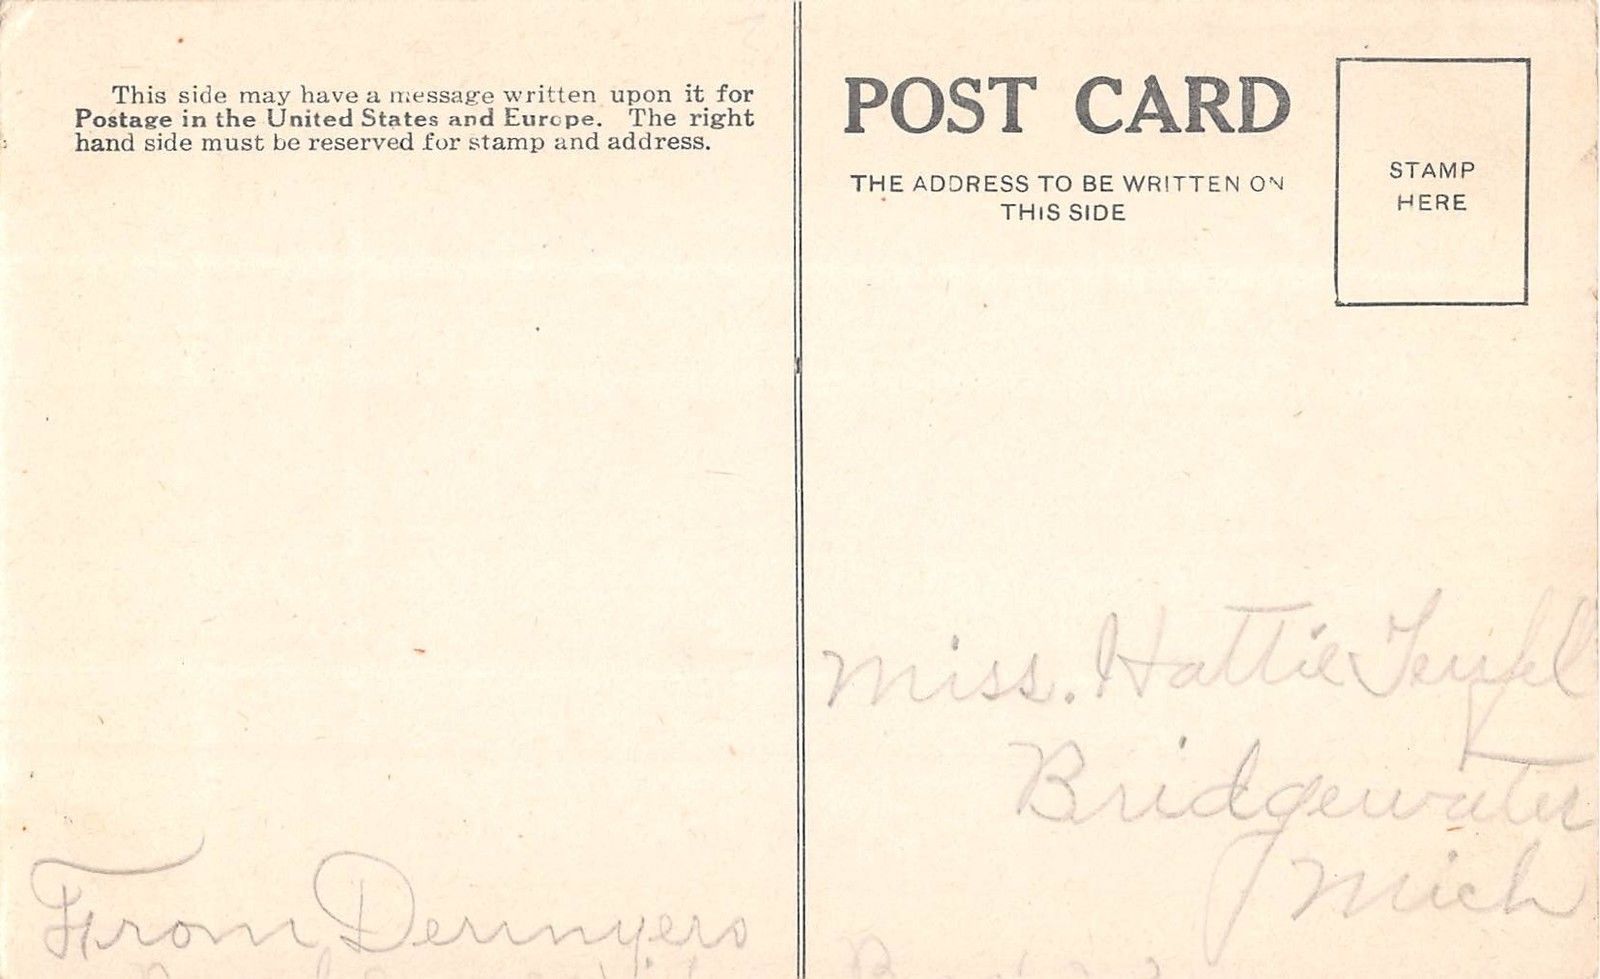 This side may have a message written upon it for
Postage in the United States and Europe. The right
hand side must be reserved for stamp and address.
POST CARD
THE ADDRESS TO BE WRITTEN ON
THIS SIDE
STAMP
HERE
Miss. Hattie Teufel
Bridgewater
Mich
From